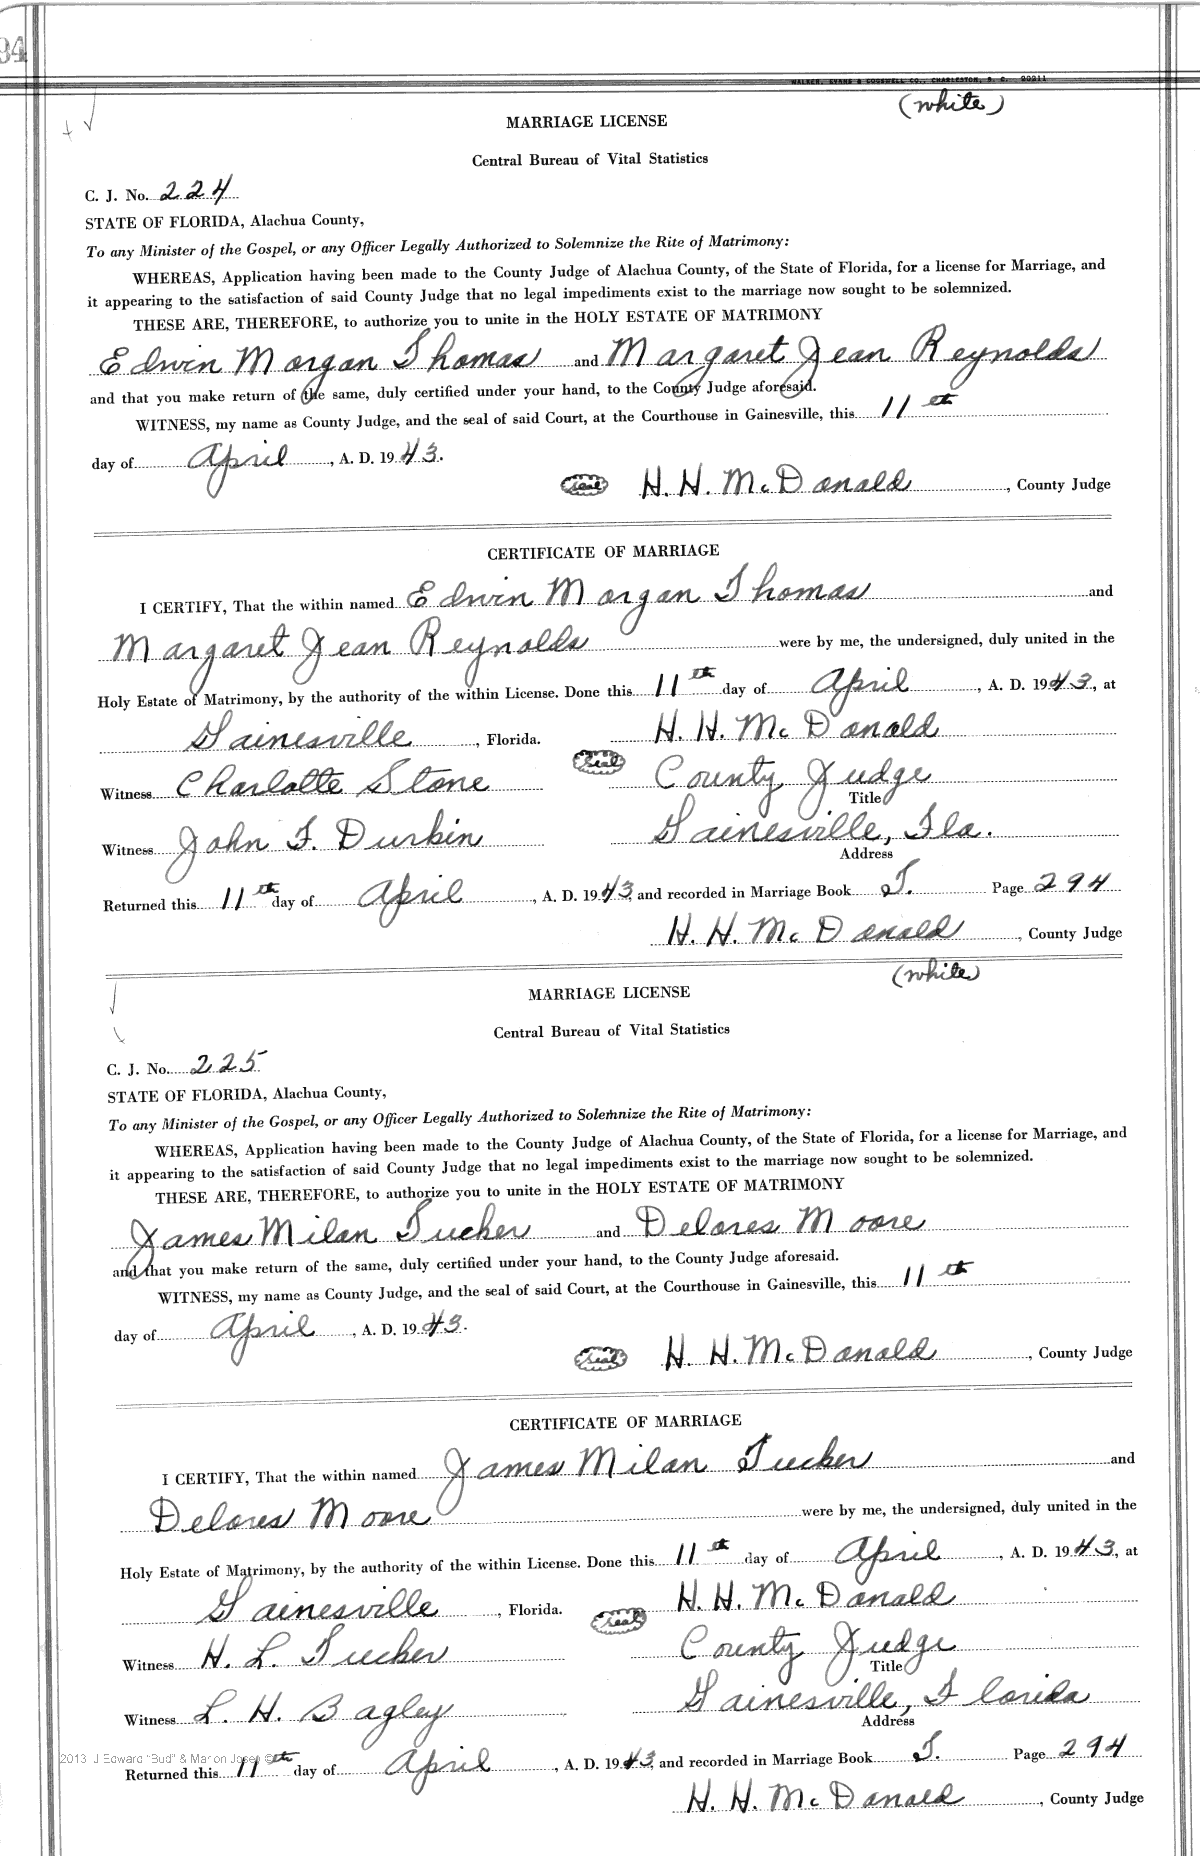 94
WALKER, EVANS & COGSWELL CO., CHARLESTON, S. C. 20211
(white)
MARRIAGE LICENSE
Central Bureau of Vital Statistics
C. J. No. 224
STATE OF FLORIDA, Alachua County,
To any Minister of the Gospel, or any Officer Legally Authorized to Solemnize the Rite of Matrimony:
WHEREAS, Application having been made to the County Judge of Alachua County, of the State of Florida, for a license for Marriage, and
it appearing to the satisfaction of said County Judge that no legal impediments exist to the marriage now sought to be solemnized.
THESE ARE, THEREFORE, to authorize you to unite in the HOLY ESTATE OF MATRIMONY
Edwin Morgan Thomas and Margaret Jean Reynolds
and that you make return of the same, duly certified under your hand, to the County Judge aforesaid.
WITNESS, my name as County Judge, and the seal of said Court, at the Courthouse in Gainesville, this 11th
day of April, A. D. 1943.
Seal H. H. McDonald, County Judge
CERTIFICATE OF MARRIAGE
I CERTIFY, That the within named Edwin Morgan Thomas and
Margaret Jean Reynolds were by me, the undersigned, duly united in the
Holy Estate of Matrimony, by the authority of the within License. Done this 11th day of April, A. D. 1943, at
Gainesville, Florida. H. H. McDonald
Seal
Witness Charlotte Stone County Judge
Title
Witness John F. Durkin Gainesville, Fla.
Address
Returned this 11th day of April, A. D. 1943, and recorded in Marriage Book T. Page 294
H. H. McDonald, County Judge
(white)
MARRIAGE LICENSE
Central Bureau of Vital Statistics
C. J. No. 225
STATE OF FLORIDA, Alachua County,
To any Minister of the Gospel, or any Officer Legally Authorized to Solemnize the Rite of Matrimony:
WHEREAS, Application having been made to the County Judge of Alachua County, of the State of Florida, for a license for Marriage, and
it appearing to the satisfaction of said County Judge that no legal impediments exist to the marriage now sought to be solemnized.
THESE ARE, THEREFORE, to authorize you to unite in the HOLY ESTATE OF MATRIMONY
James Milan Tucker and Delores Moore
and that you make return of the same, duly certified under your hand, to the County Judge aforesaid.
WITNESS, my name as County Judge, and the seal of said Court, at the Courthouse in Gainesville, this 11th
day of April, A. D. 1943.
Seal H. H. McDonald, County Judge
CERTIFICATE OF MARRIAGE
I CERTIFY, That the within named James Milan Tucker and
Delores Moore were by me, the undersigned, duly united in the
Holy Estate of Matrimony, by the authority of the within License. Done this 11th day of April, A. D. 1943, at
Gainesville, Florida. H. H. McDonald
Seal
Witness H. L. Tucker County Judge
Title
Witness L. H. Bagley Gainesville, Florida
Address
2013 J Edward "Bud" & Marion Josep ©
Returned this 11th day of April, A. D. 1943, and recorded in Marriage Book T. Page 294
H. H. McDonald, County Judge